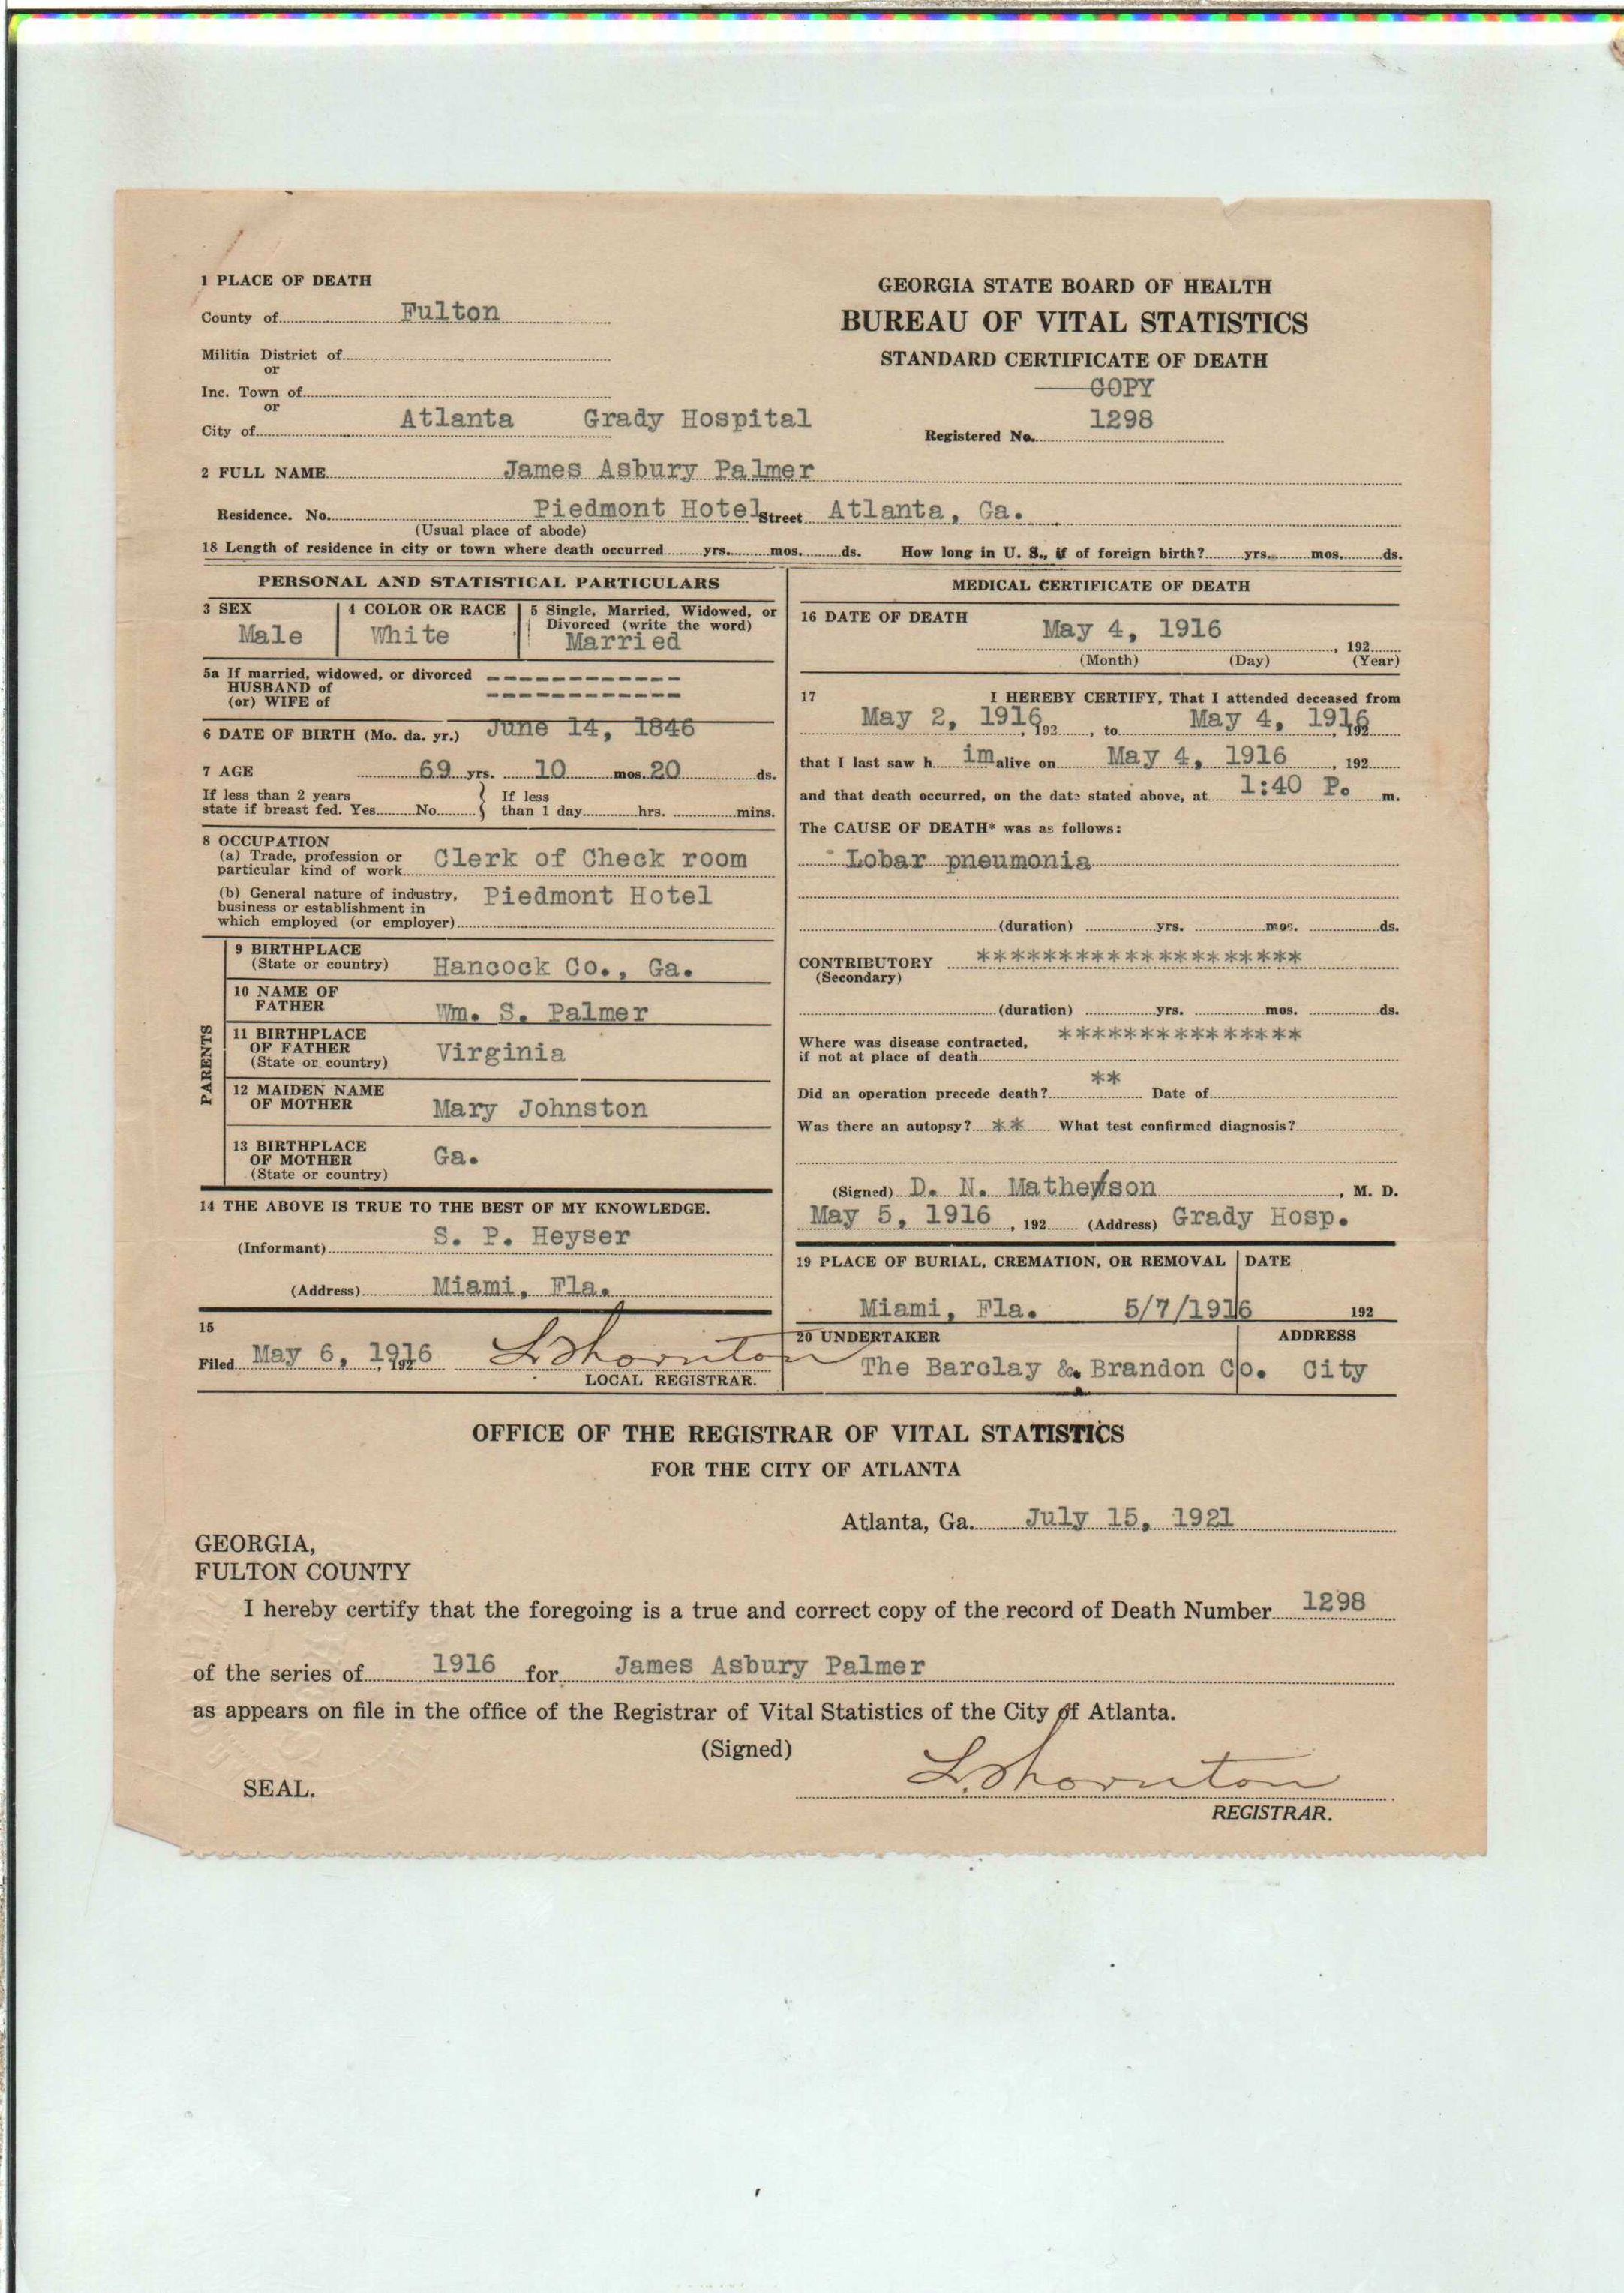 1 PLACE OF DEATH
County of Fulton
Militia District of
or
Inc. Town of
or
City of Atlanta Grady Hospital
GEORGIA STATE BOARD OF HEALTH
BUREAU OF VITAL STATISTICS
STANDARD CERTIFICATE OF DEATH
COPY
Registered No. 1298
2 FULL NAME James Asbury Palmer
Residence. No. Piedmont Hotel Street Atlanta, Ga.
(Usual place of abode)
18 Length of residence in city or town where death occurred yrs. mos. ds. How long in U. S., if of foreign birth? yrs. mos. ds.
PERSONAL AND STATISTICAL PARTICULARS
3 SEX
Male
4 COLOR OR RACE
White
5 Single, Married, Widowed, or
Divorced (write the word)
Married
5a If married, widowed, or divorced
HUSBAND of
(or) WIFE of
6 DATE OF BIRTH (Mo. da. yr.) June 14, 1846
7 AGE 69 yrs. 10 mos. 20 ds.
If less than 2 years
state if breast fed. Yes No
If less
than 1 day hrs. mins.
8 OCCUPATION
(a) Trade, profession or
particular kind of work Clerk of Check room
(b) General nature of industry,
business or establishment in
which employed (or employer) Piedmont Hotel
9 BIRTHPLACE
(State or country) Hancock Co., Ga.
PARENTS
10 NAME OF
FATHER Wm. S. Palmer
11 BIRTHPLACE
OF FATHER
(State or country) Virginia
12 MAIDEN NAME
OF MOTHER Mary Johnston
13 BIRTHPLACE
OF MOTHER
(State or country) Ga.
14 THE ABOVE IS TRUE TO THE BEST OF MY KNOWLEDGE.
(Informant) S. P. Heyser
(Address) Miami, Fla.
15
Filed May 6, 1916, 192 L Thornton
LOCAL REGISTRAR.
MEDICAL CERTIFICATE OF DEATH
16 DATE OF DEATH
May 4, 1916, 192
(Month) (Day) (Year)
17 I HEREBY CERTIFY, That I attended deceased from
May 2, 1916, 192, to May 4, 1916, 192
that I last saw h im alive on May 4, 1916, 192
and that death occurred, on the date stated above, at 1:40 P. m.
The CAUSE OF DEATH* was as follows:
Lobar pneumonia
(duration) yrs. mos. ds.
CONTRIBUTORY *******************
(Secondary)
(duration) yrs. mos. ds.
Where was disease contracted,
if not at place of death ***************
Did an operation precede death? ** Date of
Was there an autopsy? ** What test confirmed diagnosis?
(Signed) D. N. Mathewson, M. D.
May 5, 1916, 192 (Address) Grady Hosp.
19 PLACE OF BURIAL, CREMATION, OR REMOVAL DATE
Miami, Fla. 5/7/1916 192
20 UNDERTAKER ADDRESS
The Barclay & Brandon Co. City
OFFICE OF THE REGISTRAR OF VITAL STATISTICS
FOR THE CITY OF ATLANTA
Atlanta, Ga. July 15, 1921
GEORGIA,
FULTON COUNTY
I hereby certify that the foregoing is a true and correct copy of the record of Death Number 1298
of the series of 1916 for James Asbury Palmer
as appears on file in the office of the Registrar of Vital Statistics of the City of Atlanta.
(Signed)
L. Thornton
SEAL.
REGISTRAR.